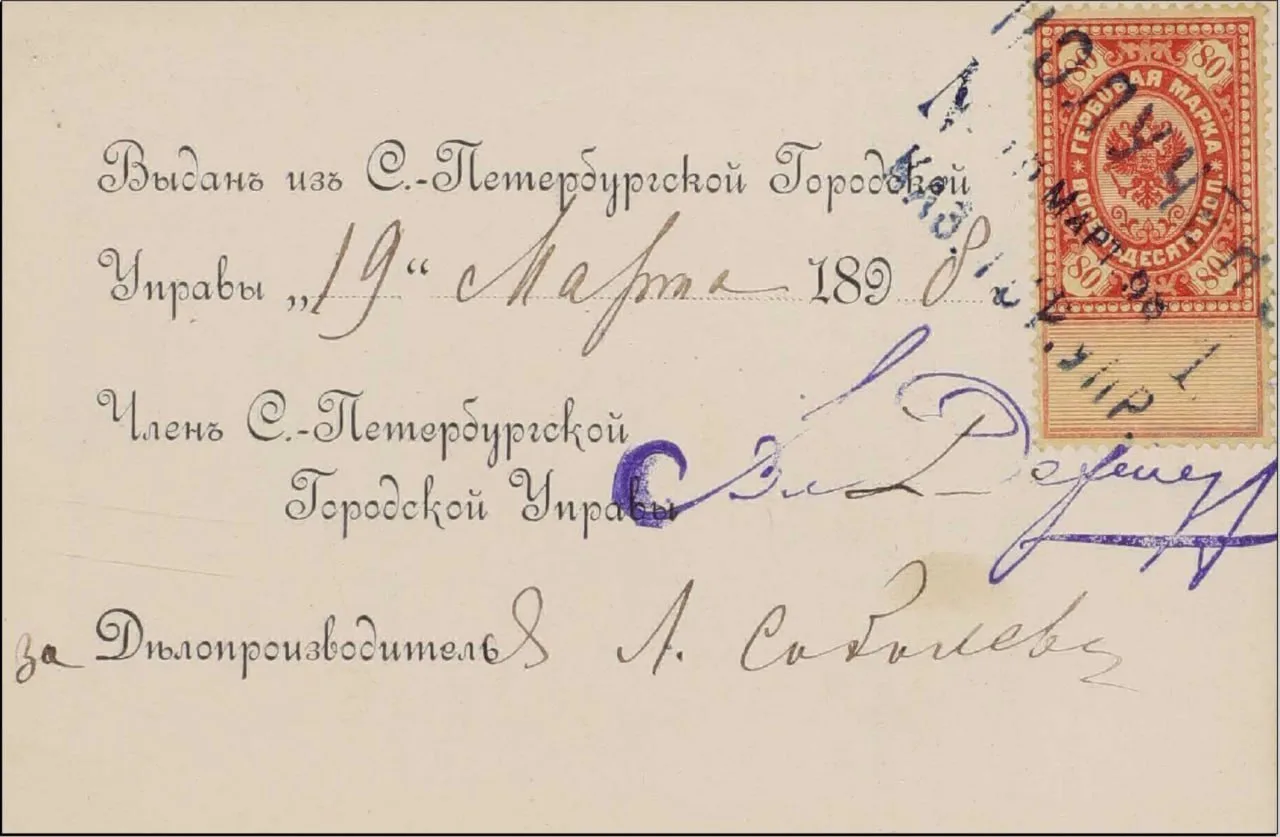 Выданъ изъ С.-Петербургской Городской
Управы „19“ Марта 1898 г.
Членъ С.-Петербургской
Городской Управы
за Дѣлопроизводителья А. Соболевъ
80 80
ГЕРБОВАЯ МАРКА
ВОСЕМЬДЕСЯТЪ КОП.
80 80
МАРТ. 98